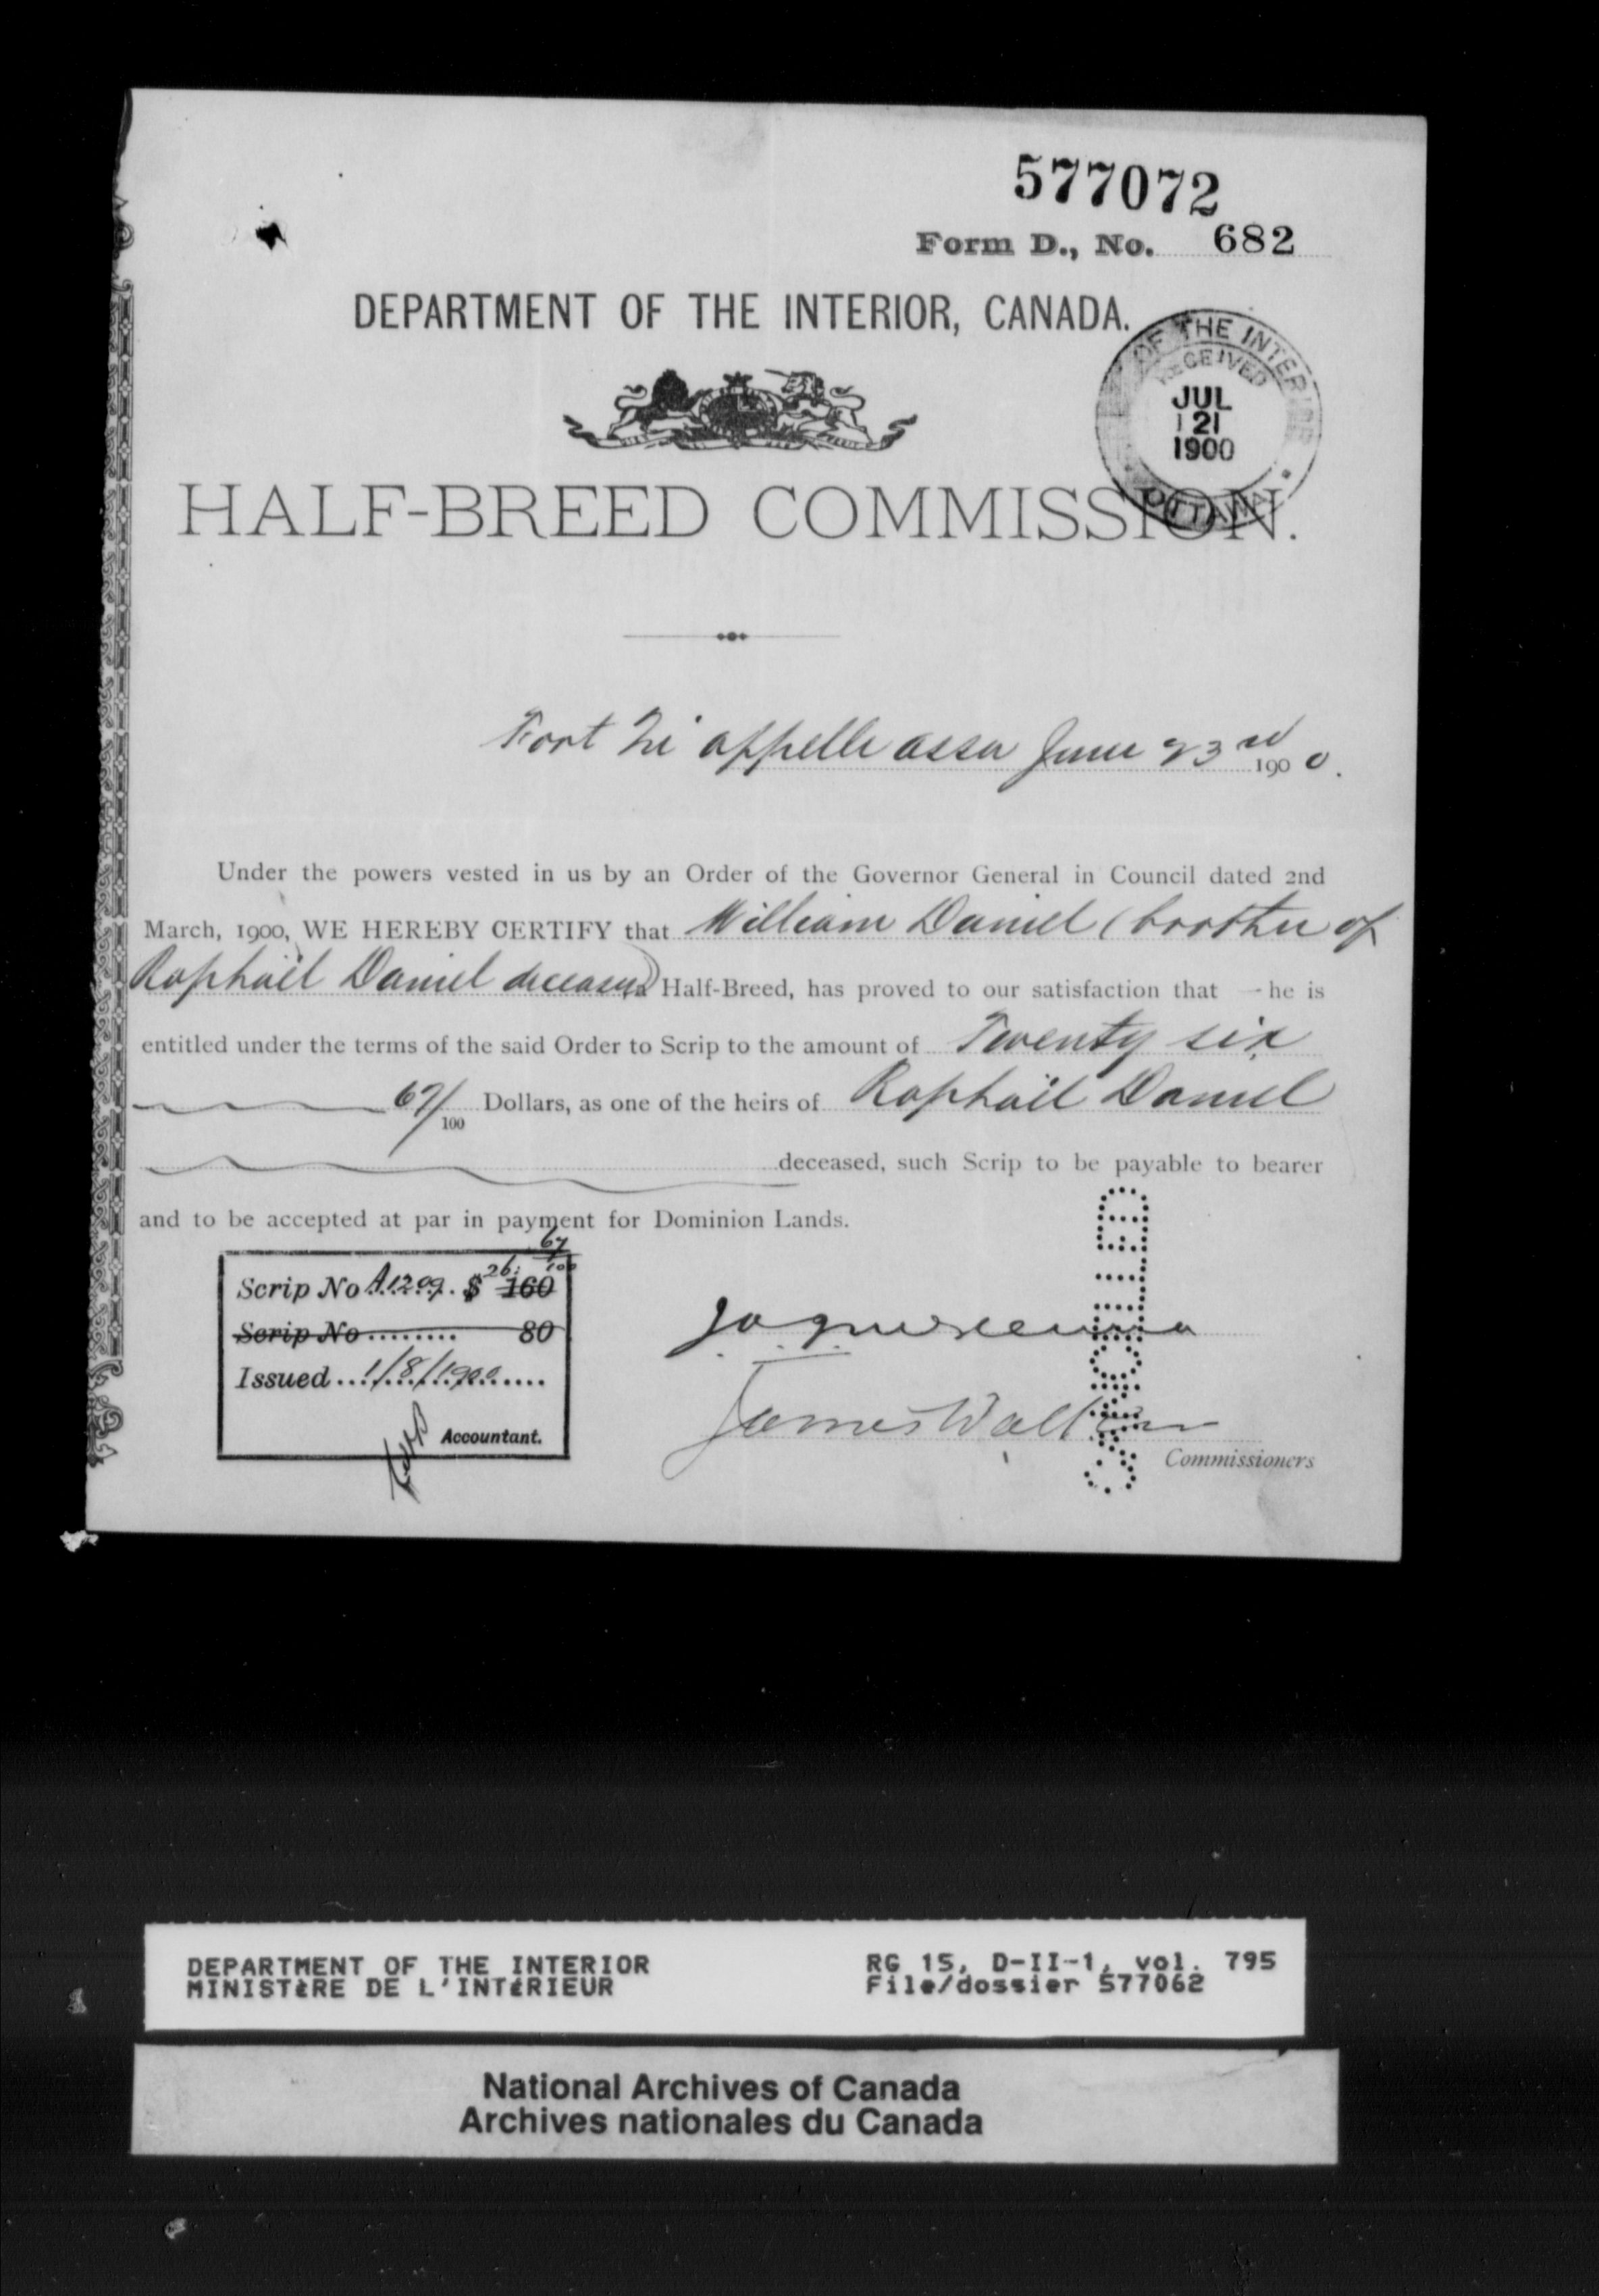 577072
Form D., No. 682
DEPARTMENT OF THE INTERIOR, CANADA.
OF THE INTERIOR
RECEIVED
JUL
21
1900
OTTAWA
HALF-BREED COMMISSION.
Fort Qu'appelle assa June 23rd 1900.
Under the powers vested in us by an Order of the Governor General in Council dated 2nd
March, 1900, WE HEREBY CERTIFY that William Daniel (brother of
Raphaël Daniel deceased) Half-Breed, has proved to our satisfaction that —he is
entitled under the terms of the said Order to Scrip to the amount of Twenty six
67/100 Dollars, as one of the heirs of Raphaël Daniel
deceased, such Scrip to be payable to bearer
and to be accepted at par in payment for Dominion Lands.
67
Scrip No A.1209. $ 26. 100 160
Scrip No ......... 80
Issued ... 1/8/1900 ......
Accountant.
James Walker
Commissioners
DEPARTMENT OF THE INTERIOR RG 15, D-II-1, vol. 795
MINISTèRE DE L'INTéRIEUR File/dossier 577062
National Archives of Canada
Archives nationales du Canada